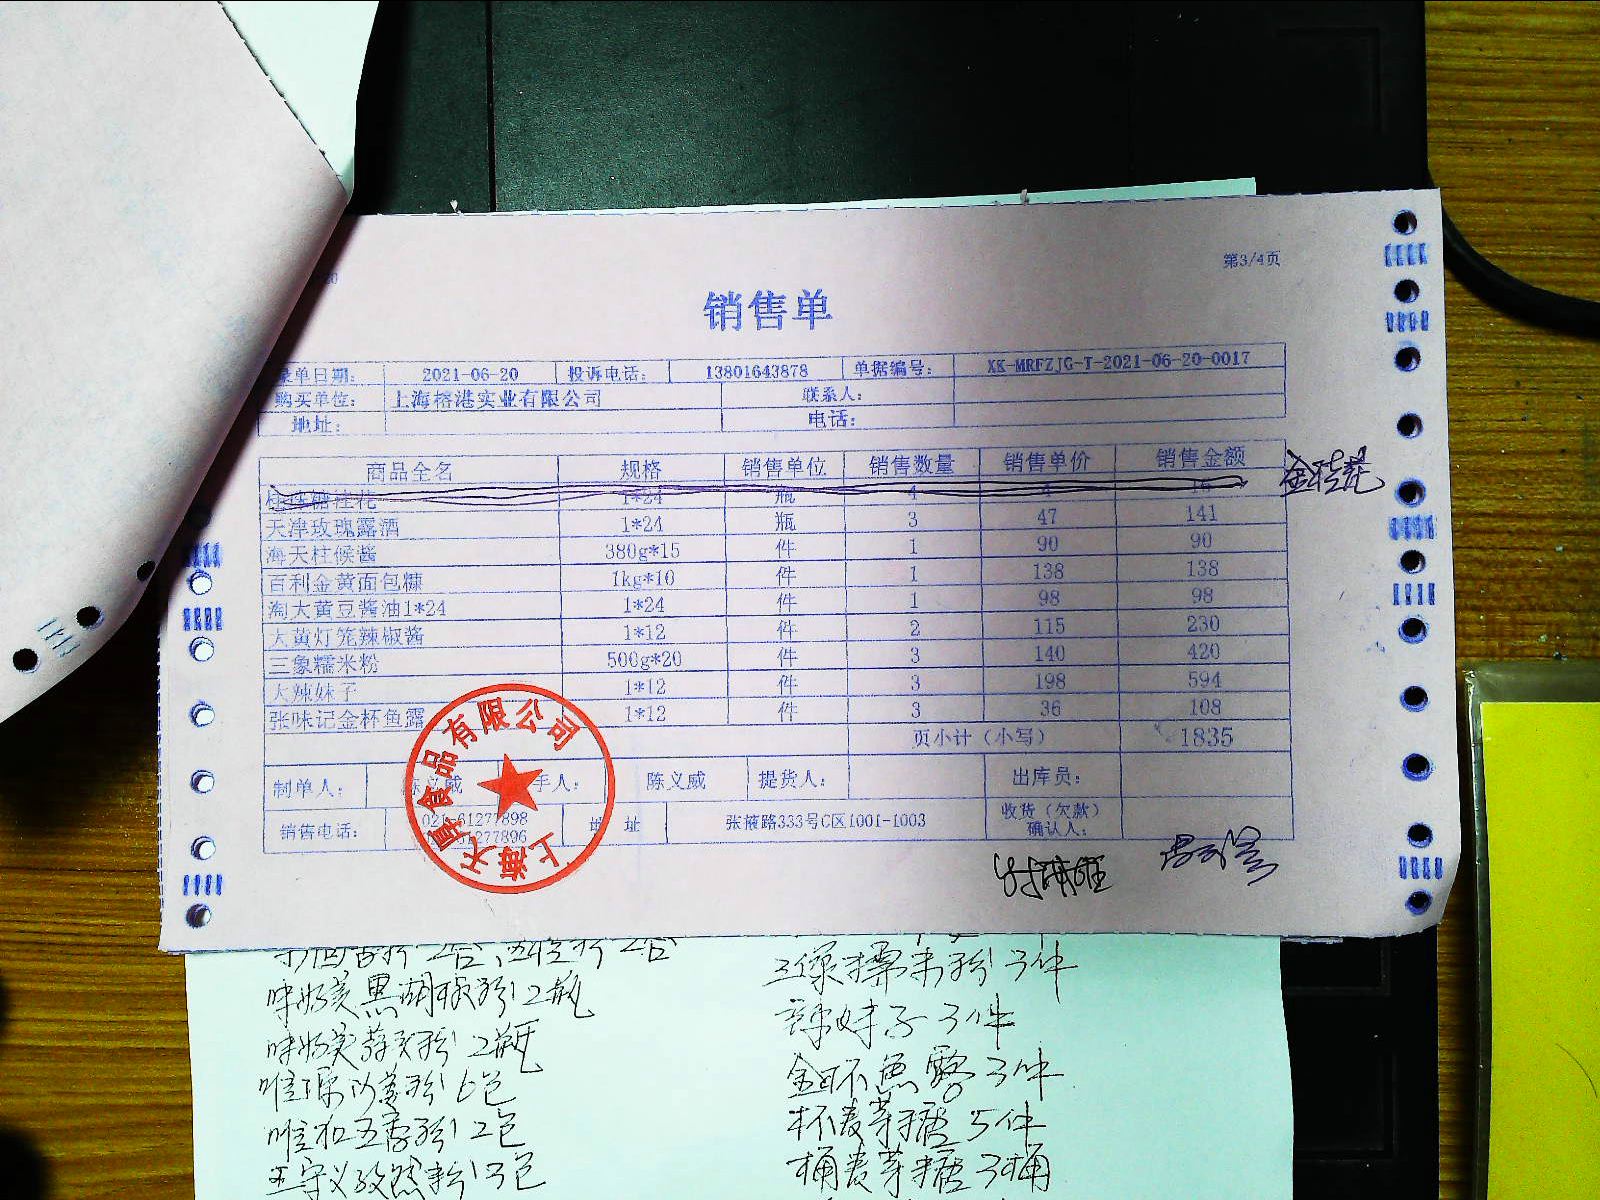 第3/4页
销售单
录单日期: 2021-06-20 投诉电话: 13801643878 单据编号: XK-MRFZJG-T-2021-06-20-0017
购买单位: 上海榕港实业有限公司 联系人:
地址: 电话:
商品全名 规格 销售单位 销售数量 销售单价 销售金额
糖桂花 1*24 瓶 4 4 16 金桂花
天津玫瑰露酒 1*24 瓶 3 47 141
海天柱候酱 380g*15 件 1 90 90
百利金黄面包糠 1kg*10 件 1 138 138
淘大黄豆酱油1*24 1*24 件 1 98 98
大黄灯笼辣椒酱 1*12 件 2 115 230
三象糯米粉 500g*20 件 3 140 420
大辣妹子 1*12 件 3 198 594
张味记金杯鱼露 1*12 件 3 36 108
页小计（小写） 1835
制单人: 陈义威 手人: 陈义威 提货人: 出库员:
销售电话: 021-61277898 61277896 地址 张掖路333号C区1001-1003 收货（欠款）确认人:
上海天厚食品有限公司
味好美黑胡椒粉 2瓶
味好美蒜香粉 2瓶
6包
五香粉 2包
王守义孜然粉 3包
三象糯米粉 3件
辣妹子 3件
金杯鱼露 3件
杯麦芽糖 5件
桶麦芽糖 3桶